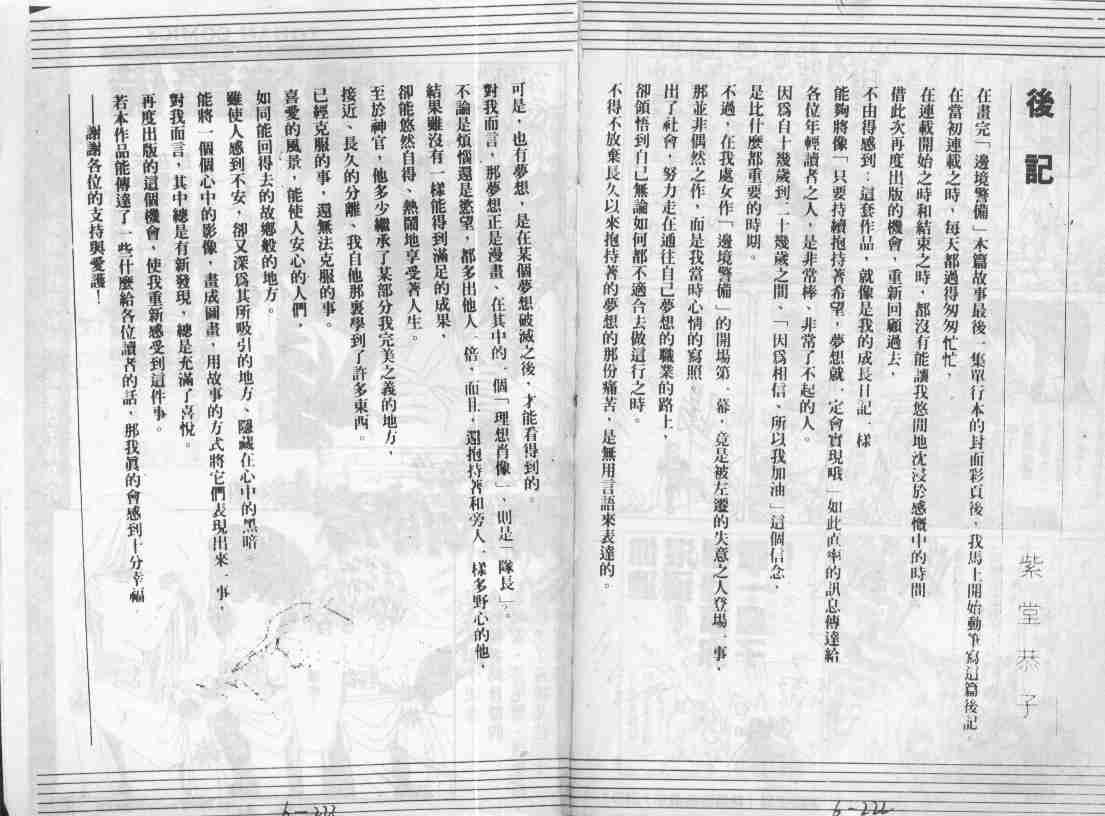 後記
紫堂恭子
在畫完「邊境警備」本篇故事最後一集單行本的封面彩頁後，我馬上開始動筆寫這篇後記。
在當初連載之時，每天都過得匆匆忙忙，
在連載開始之時和結束之時，都沒有能讓我悠閒地沈浸於感慨中的時間
借此次再度出版的機會，重新回顧過去，
不由得感到：這套作品，就像是我的成長日記一樣
能夠將像「只要持續抱持著希望，夢想就一定會實現哦」如此直率的訊息傳達給
各位年輕讀者之人，是非常棒、非常了不起的人。
因為自十幾歲到二十幾歲之間、「因為相信、所以我加油」這個信念，
是比什麼都重要的時期。
不過，在我處女作「邊境警備」的開場第一幕，竟是被左遷的失意之人登場一事，
那並非偶然之作，而是我當時心情的寫照。
出了社會，努力走在通往自己夢想的職業的路上，
卻領悟到自己無論如何都不適合去做這行之時。
不得不放棄長久以來抱持著的夢想的那份痛苦，是無用言語來表達的。
可是，也有夢想，是在某個夢想破滅之後，才能看得到的。
對我而言，那夢想正是漫畫、在其中的一個「理想肖像」、則是「隊長」。
不論是煩惱還是慾望，都多出他人一倍，而且，還抱持著和旁人一樣多野心的他，
結果雖沒有一樣能得到滿足的成果，
卻能悠然自得、熱鬧地享受著人生。
至於神官，他多少繼承了某部分我完美之義的地方，
接近、長久的分離、我自他那裏學到了許多東西。
已經克服的事，還無法克服的事。
喜愛的風景，能使人安心的人們，
如同能回得去的故鄉般的地方。
雖使人感到不安，卻又深為其所吸引的地方、隱藏在心中的黑暗。
能將一個個心中的影像，畫成圖畫，用故事的方式將它們表現出來一事，
對我而言，其中總是有新發現，總是充滿了喜悅。
再度出版的這個機會，使我重新感受到這件事。
若本作品能傳達了一些什麼給各位讀者的話，那我真的會感到十分幸福
——謝謝各位的支持與愛護！
6-222
6-223